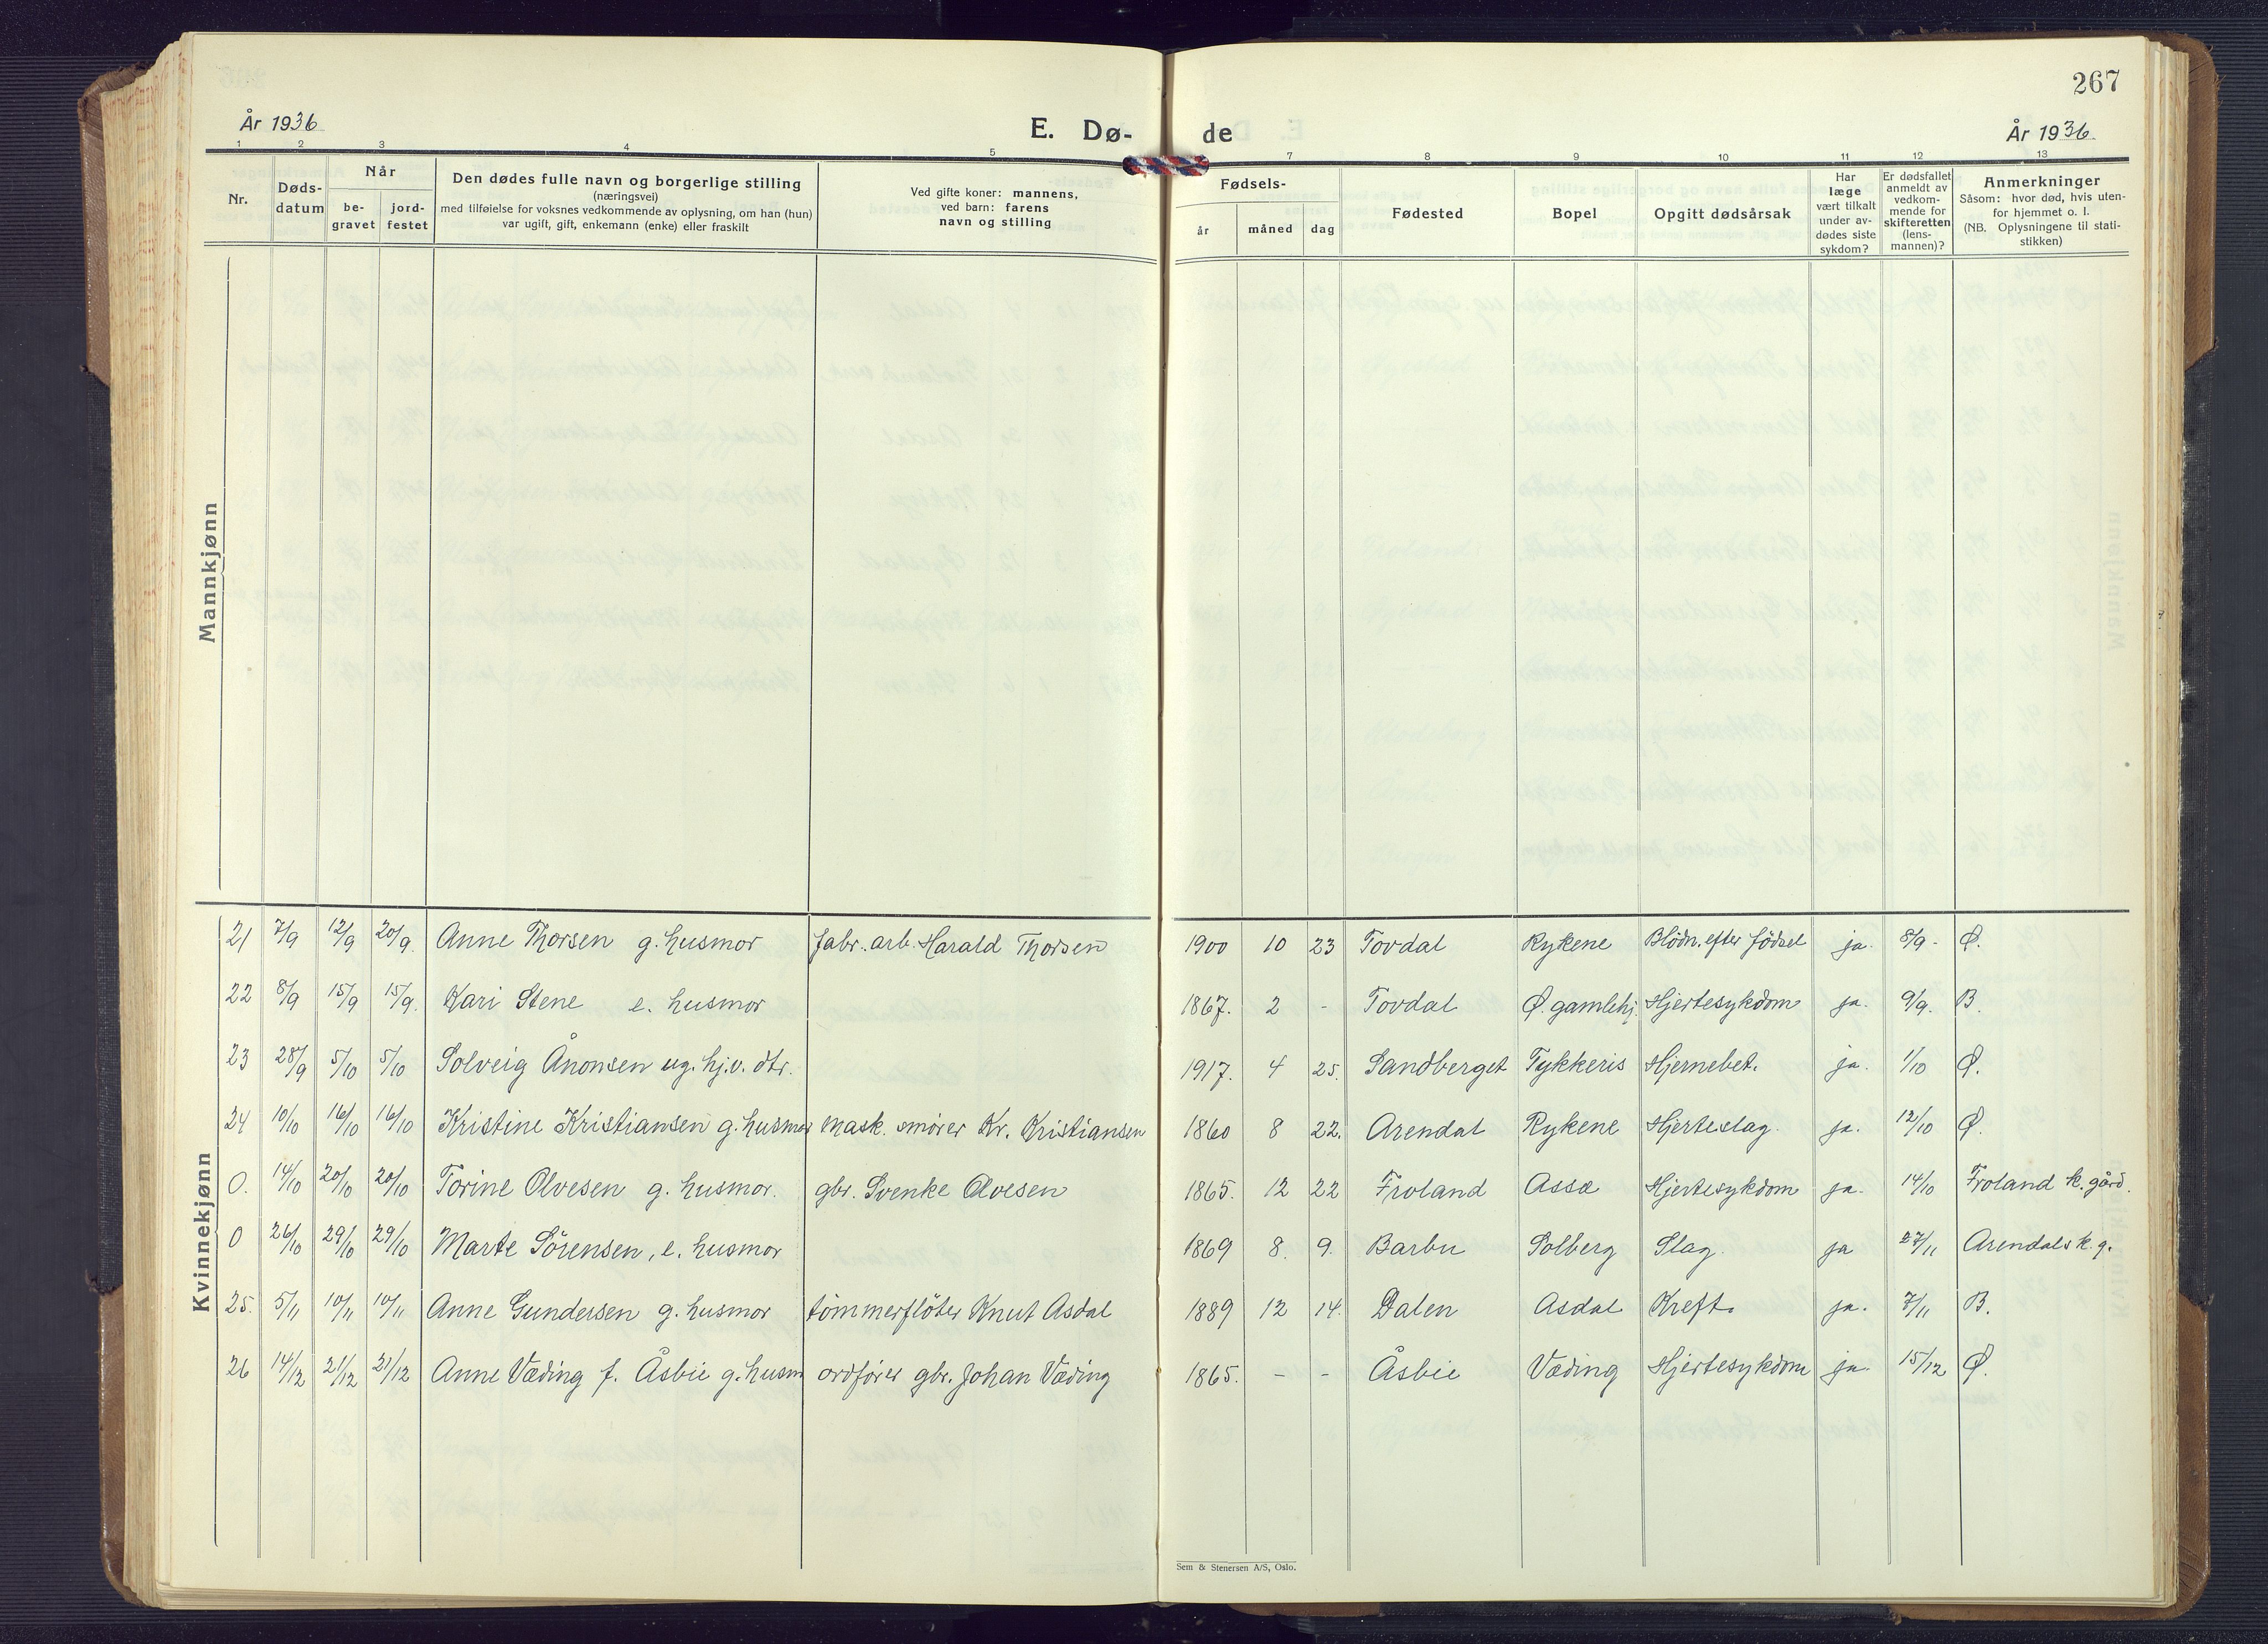 267
År 1936
E. Dø-
de
År 1936.
1 2 3 4 5 7 8 9 10 11 12 13
Nr.
Døds-
datum
Når
be-
gravet
jord-
festet
Den dødes fulle navn og borgerlige stilling
(næringsvei)
med tilføielse for voksnes vedkommende av oplysning, om han (hun)
var ugift, gift, enkemann (enke) eller fraskilt
Ved gifte koner: mannens,
ved barn: farens
navn og stilling
Fødsels-
år måned dag
Fødested
Bopel
Opgitt dødsårsak
Har
læge
vært tilkalt
under av-
dødes siste
sykdom?
Er dødsfallet
anmeldt av
vedkom-
mende for
skifteretten
(lens-
mannen)?
Anmerkninger
Såsom: hvor død, hvis uten-
for hjemmet o. l.
(NB. Oplysningene til stati-
stikken)
Mannkjønn
Kvinnekjønn
21 7/9 12/9 20/9. Anne Thorsen g. husmor fabr. arb. Harald Thorsen 1900 10 23 Tovdal Rykene Blödn. efter födsel ja. 8/9- Ø.
22 8/9 15/9 15/9. Kari Stene e. husmor 1867. 2 - Tovdal Ø. gamlehj. Hjertesykdom ja. 9/9. B.
23 28/9 5/10 5/10 Solveig Ånonsen ug. hj.v. dtr. 1917. 4 25. Sandberget Tykkeris Hjernebet. ja. 1/10 Ø.
24 10/10 16/10 16/10 Kristine Kristiansen g. husmor mask. smörer Kr. Kristiansen 1860 8 22. Arendal Rykene Hjerteslag. ja. 12/10 Ø.
0. 14/10 20/10 20/10 Torine Olvesen g. husmor. gbr. Svenke Olvesen 1865. 12 22 Froland Assæ Hjertesykdom ja. 14/10 Froland k. gård.
0 26/10 29/10 29/10 Marte Sörensen, e. husmor 1869 8. 9. Barbu Solberg Slag. ja 27/11 Arendals k. g.
25. 5/11 10/11 10/11 Anne Gundersen g. husmor tömmerflöter Knut Asdal 1889 12 14. Dalen Asdal Kreft. ja. 7/11 B.
26 14/12 21/12 21/12 Anne Væding f. Åsbie g. husm ordförer gbr. Johan Væding 1865. - - Åsbie Væding Hjertesykdom ja. 15/12 Ø.
Sem & Stenersen A/S, Oslo.